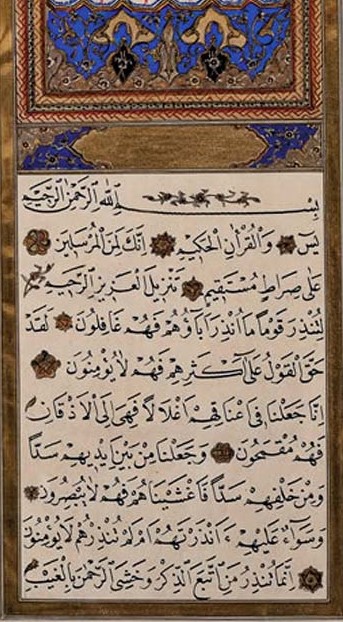 بِسْمِ اللهِ الرَّحْمٰنِ الرَّحِيمِ
يٰسٓ وَالْقُرْاٰنِ الْحَكِيمِ اِنَّكَ لَمِنَ الْمُرْسَلِينَ
عَلٰى صِرَاطٍ مُسْتَقِيمٍ تَنْزِيلَ الْعَزِيزِ الرَّحِيمِ
لِتُنْذِرَ قَوْمًا مَا اُنْذِرَ اٰبَاؤُهُمْ فَهُمْ غَافِلُونَ لَقَدْ
حَقَّ الْقَوْلُ عَلٰى اَكْثَرِهِمْ فَهُمْ لَا يُؤْمِنُونَ
اِنَّا جَعَلْنَا فِى اَعْنَاقِهِمْ اَغْلَالًا فَهِىَ اِلَى الْاَذْقَانِ
فَهُمْ مُقْمَحُونَ وَجَعَلْنَا مِنْ بَيْنِ اَيْدِيهِمْ سَدًّا
وَمِنْ خَلْفِهِمْ سَدًّا فَاَغْشَيْنَاهُمْ فَهُمْ لَا يُبْصِرُونَ
وَسَوَاءٌ عَلَيْهِمْ ءَاَنْذَرْتَهُمْ اَمْ لَمْ تُنْذِرْهُمْ لَا يُؤْمِنُونَ
اِنَّمَا تُنْذِرُ مَنِ اتَّبَعَ الذِّكْرَ وَخَشِىَ الرَّحْمٰنَ بِالْغَيْبِ